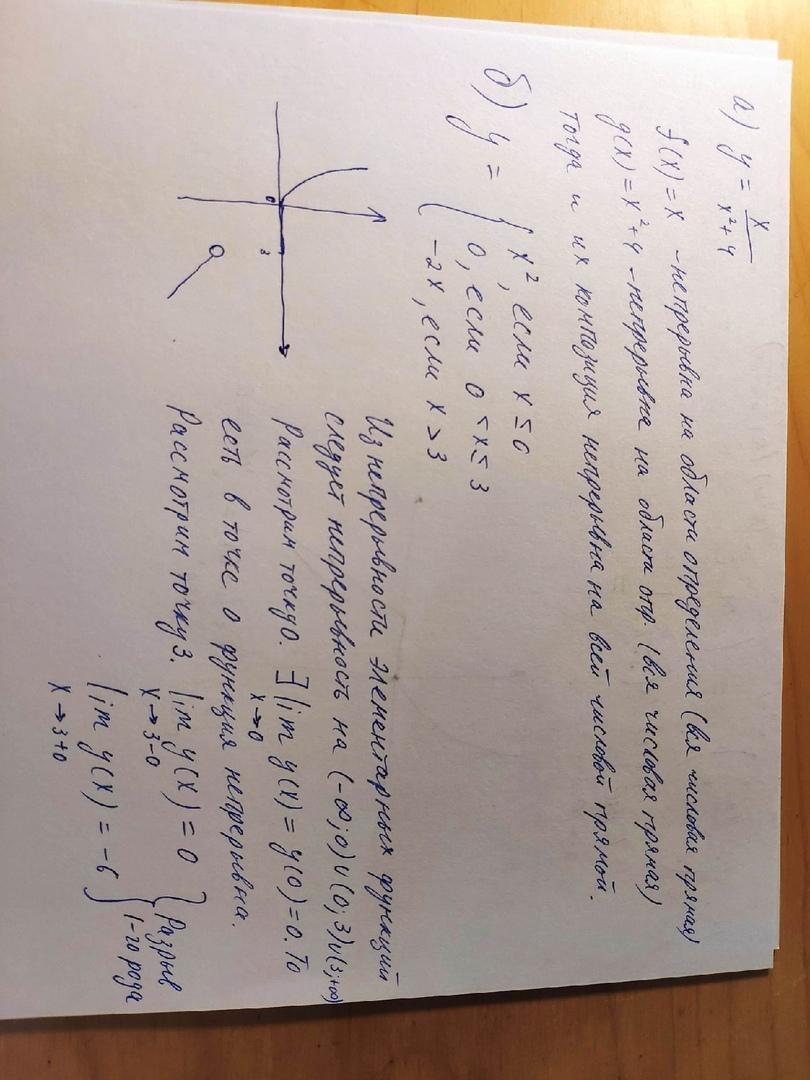 а) y = x/(x²+4)
f(x) = x - непрерывна на области определения (вся числовая прямая)
g(x) = x²+4 - непрерывна на области опр. (вся числовая прямая)
тогда и их композиция непрерывна на всей числовой прямой.
б) y = { x², если x ≤ 0
0, если 0 < x ≤ 3
-2x, если x > 3
0
3
Из непрерывности элементарных функций
следует непрерывность на (-∞;0)∪(0;3)∪(3;+∞)
Рассмотрим точку 0. ∃ lim y(x) = y(0) = 0. То
x→0
есть в точке 0 функция непрерывна.
Рассмотрим точку 3. lim y(x) = 0 } Разрыв
x→3-0
lim y(x) = -6 } 1-го рода
x→3+0